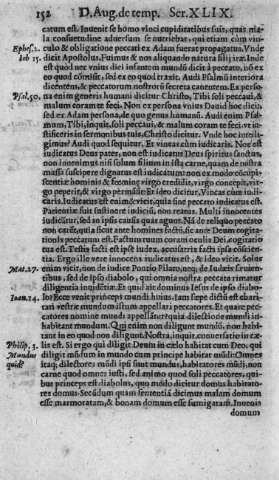 152 D. Aug. de temp. Ser. XLIX.
catum est. Inuenit se homo vinci cupiditatibus suis, quas ma-
la consuetudine aduersum se nutriebat, qui etiam cum vin-
Ephes. 2. culo & obligatione peccati ex Adam fuerat propagatus. Vnde
Iob 15. dicit Apostolus. Fuimus & nos aliquando natura filij iræ. Inde
est quod nec vnius diei infantem mundũ dicit à peccato, nõ ex
eo quod comisit, sed ex eo quod traxit. Audi Psalmũ interiora
dicentem, & peccatorum nostrorũ secreta cantantem. Ex perso-
Psal. 50. na enim generis humani dicitur Christo, Tibi soli peccaui, &
malum coram te feci. Non ex persona vnius Dauid hoc dicit,
sed ex Adam persona, de quo genus humanũ. Audi enim Psal-
mum, Tibi, inquit, soli peccaui, & malum coram te feci, vt iu-
stificeris in sermonibus tuis, Christo dicitur. Vnde hoc intelli-
gimus? Audi quod sequitur. Et vincas cum iudicaris. Nec est
iudicatus Deus pater, non est iudicatus Deus spiritus sanctus,
non inuenimus nisi solum filium in ista carne, quam de nostra
massa suscipere dignatus est iudicatum non ex modo cõcupis-
centiæ hominis & femineæ
virgo credidit, virgo concepit, vir-
go peperit, & virgo permãsit. Et ideo dicitur, Vincas cum iudi-
caris. Iudicatus est enim, & vicit, quia sine peccato iudicatus est.
Patientiæ fuit sustinere iudiciũ, non reatus. Multi innocentes
iudicãtur, sed in ipsa causa quæ agunt. Nã de reliquo peccato
non caret, quia sicut ante homines factũ, sic ante Deum cogita-
tionis peccatum est. Factum tuum coram oculis Dei, cogitatio
tua est. Testis facti est ipse iudex, accusatrix facti ipsa cõscien-
tia. Ergo ille vere innocens iudicatus est, & ideo vicit. Solum
enim vicit, non de iudice Pontio Pilato, nec de Iudæis sæuien-
tibus, sed de ipso diabolo, qui omnia nostra peccata rimatur
Mat. 27. diligentia inquidiæ. Et quid ait dominus Iesus de ipso diabo-
Ioan. 14. lo? Ecce venit princeps mundi huius. Iam sæpe dictũ est chari-
tati vestræ mundum istum appellari peccatores. Et quare pec-
catores nomine mundi appellãtur? quia dilectione mundi in-
habitant mundum. Qui enim non diligunt mundũ, non habi-
tant in eo quod non diligunt. Nostra, inquit, conuersatio in cæ-
Philip. 3. lis est. Si ergo qui diligit Deum in cælo habitat cum Deo, qui
Mundus diligit mũdum in mundo cum principe habitat mũdi. Omnes
quid? itaq; dilectores mũdi ipsi sunt mundus, habitatores mũdi, non
carne quod omnes iusti, sed animo quod soli peccatores, qui-
bus princeps est diabolus, quo modo dicitur domus habitato-
res domus. Secũdum quam sententiã dicimus malam domum
esse marmoratam, & bonam domum esse fumigatam. Inuenis
domum